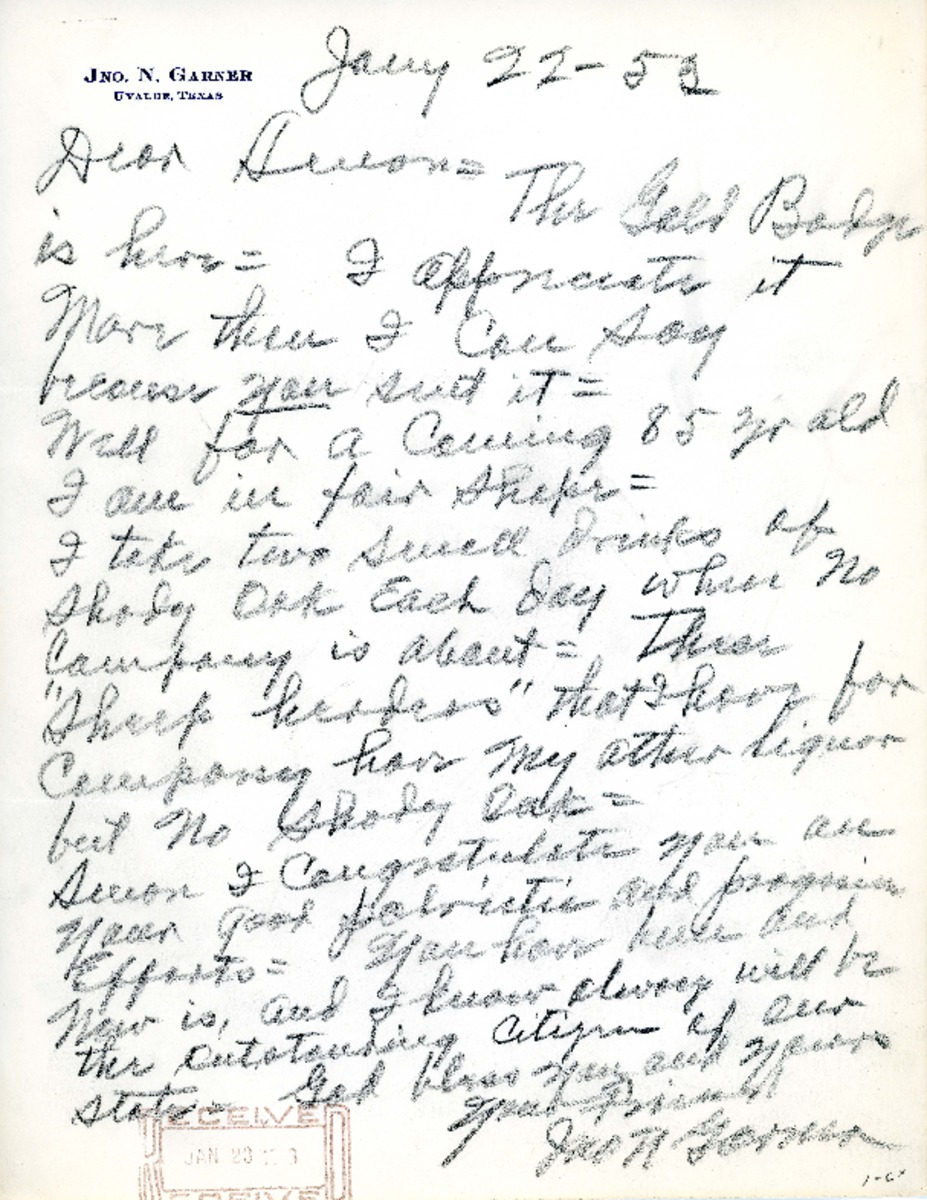 JNO. N. GARNER
UVALDE, TEXAS
Jany 22-53
Dear Amon=
The Gold Badge
is here= I appreciate it
More than I Can Say
because you sent it=
Well for a Coming 85 yr old
I am in fair shape=
I take two small drinks of
Shady Oak Each Day when No
Company is about= These
"Sheep herders" that I have for
Company have My other liquor
but No Shady Oak=
Amon I Congratulate you on
your good patriotic and progressive
Efforts= You have been and
Now is, and I know always will be
the outstanding Citizen of our
state= God bless you and yours
Your Friend
Jno N Garner
RECEIVE
JAN 23
RECEIVE